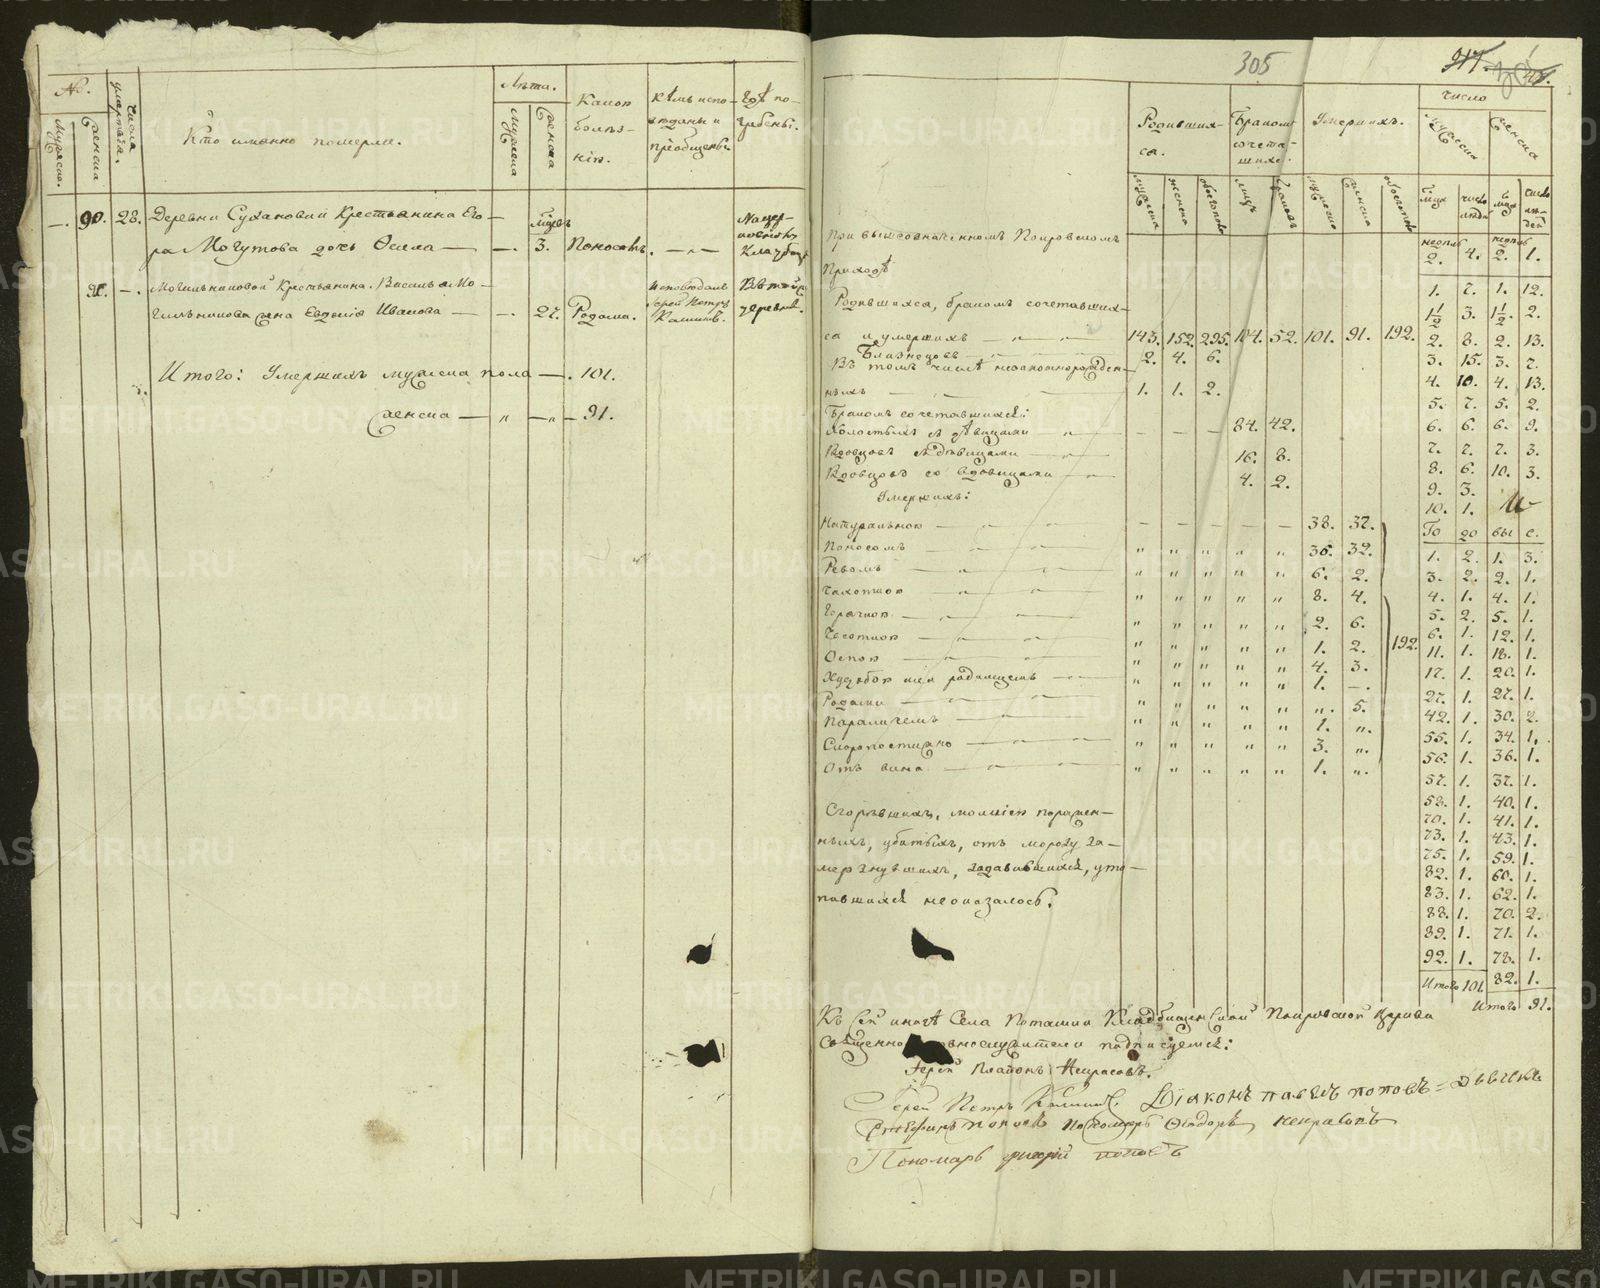 №.
Мужеска.
Женска
Числа умертвія.
Кто имянно померли.
Лѣта.
Мужеска
Женска
Какою болѣз-
нію.
Кѣмъ испо-
вѣданы и
пріобщены
Гдѣ по-
гребены.
—. 90. 28. Деревни Сухановки Крестьянина Его-
ра Могутова дочь Фекла — —. мцовъ 3. Поносомъ. —„—
На цер-
ковномъ
Кладбищѣ
91. —. Могильниковой Крестьянина Василья Мо-
гильникова жена Евдокія Иванова — —. 27. Родами.
Исповѣдалъ
Іерей Петръ
Калашн.
Въ той
деревнѣ.
Итого: Умершихъ мужеска пола —. 101.
женска — „ —„— 91.
305
Родивших-
ся.
Бракомъ
сочета-
шихс.
Умершихъ.
Число
мужеска
женска
мужеска
женска
обоегопола
лицъ
браковъ
мужеска
женска
обоегопола
При вышеозначенномъ Покровскомъ
Приходѣ
Родившихся, бракомъ сочетавших-
ся и умершихъ — „ — „ 143. 152. 295. 104. 52. 101. 91. 192.
Близнецовъ 2. 4. 6.
Въ томъ числѣ незаконнорожден-
ныхъ 1. 1. 2.
Бракомъ сочетавшихся:
Холостыхъ съ дѣвицами — „ — 84. 42.
Вдовцовъ съ дѣвицами — 16. 8.
Вдовцовъ со вдовицами — 4. 2.
Умершихъ:
Натуральною — 38. 37.
Поносомъ 36. 32.
Ревомъ 6. 2.
Чахоткою 8. 4.
Горячкою 2. 6.
Чесоткою 1. 2.
Оспою 4. 3.
192.
Худобою или родимцемъ 1. —.
Родами „. 5.
Параличемъ 1. „.
Скоропостижно 3. „.
Отъ вина 1. „.
Сгорѣвшихъ, молніею поражен-
ныхъ, убитыхъ, отъ морозу за-
мерзнувшихъ, задавившихся, уто-
нувшихся неоказалось.
2. 4. 2. 1.
1. 7. 1. 12.
1½ 3. 1½. 2.
2. 8. 2. 13.
3. 15. 3. 7.
4. 10. 4. 13.
5. 7. 5. 2.
6. 6. 6. 9.
7. 7. 7. 3.
8. 6. 10. 3.
9. 3.
10. 1.
Го до вы е.
1. 2. 1. 3.
3. 2. 2. 1.
4. 1. 4. 1.
5. 2. 5. 1.
6. 1. 12. 1.
11. 1. 18. 1.
17. 1. 20. 1.
27. 1. 27. 1.
42. 1. 30. 2.
55. 1. 34. 1.
56. 1. 36. 1.
57. 1. 37. 1.
58. 1. 40. 1.
70. 1. 41. 1.
73. 1. 43. 1.
75. 1. 59. 1.
82. 1. 60. 1.
83. 1. 62. 1.
88. 1. 70. 2.
89. 1. 71. 1.
92. 1. 78. 1.
Итого 101. 82. 1.
Итого 91.
Къ сей книгѣ Села Поташки Кладбищенской Покровской Церкви
Священно церковнослужители подписуемся:
Іерей Платонъ Некрасовъ.
Іерей Петръ Діяконъ павелъ поповъ = дьячекъ
Стефанъ поповъ Пономарь Ѳеодоръ некрасовъ
Пономарь поповъ
METRIKI.GASO-URAL.RU